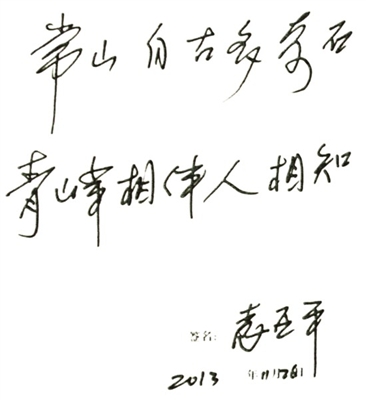 常山自古多奇石
青峰相伴人相知
签名: 袁亚平
2013年11月17日